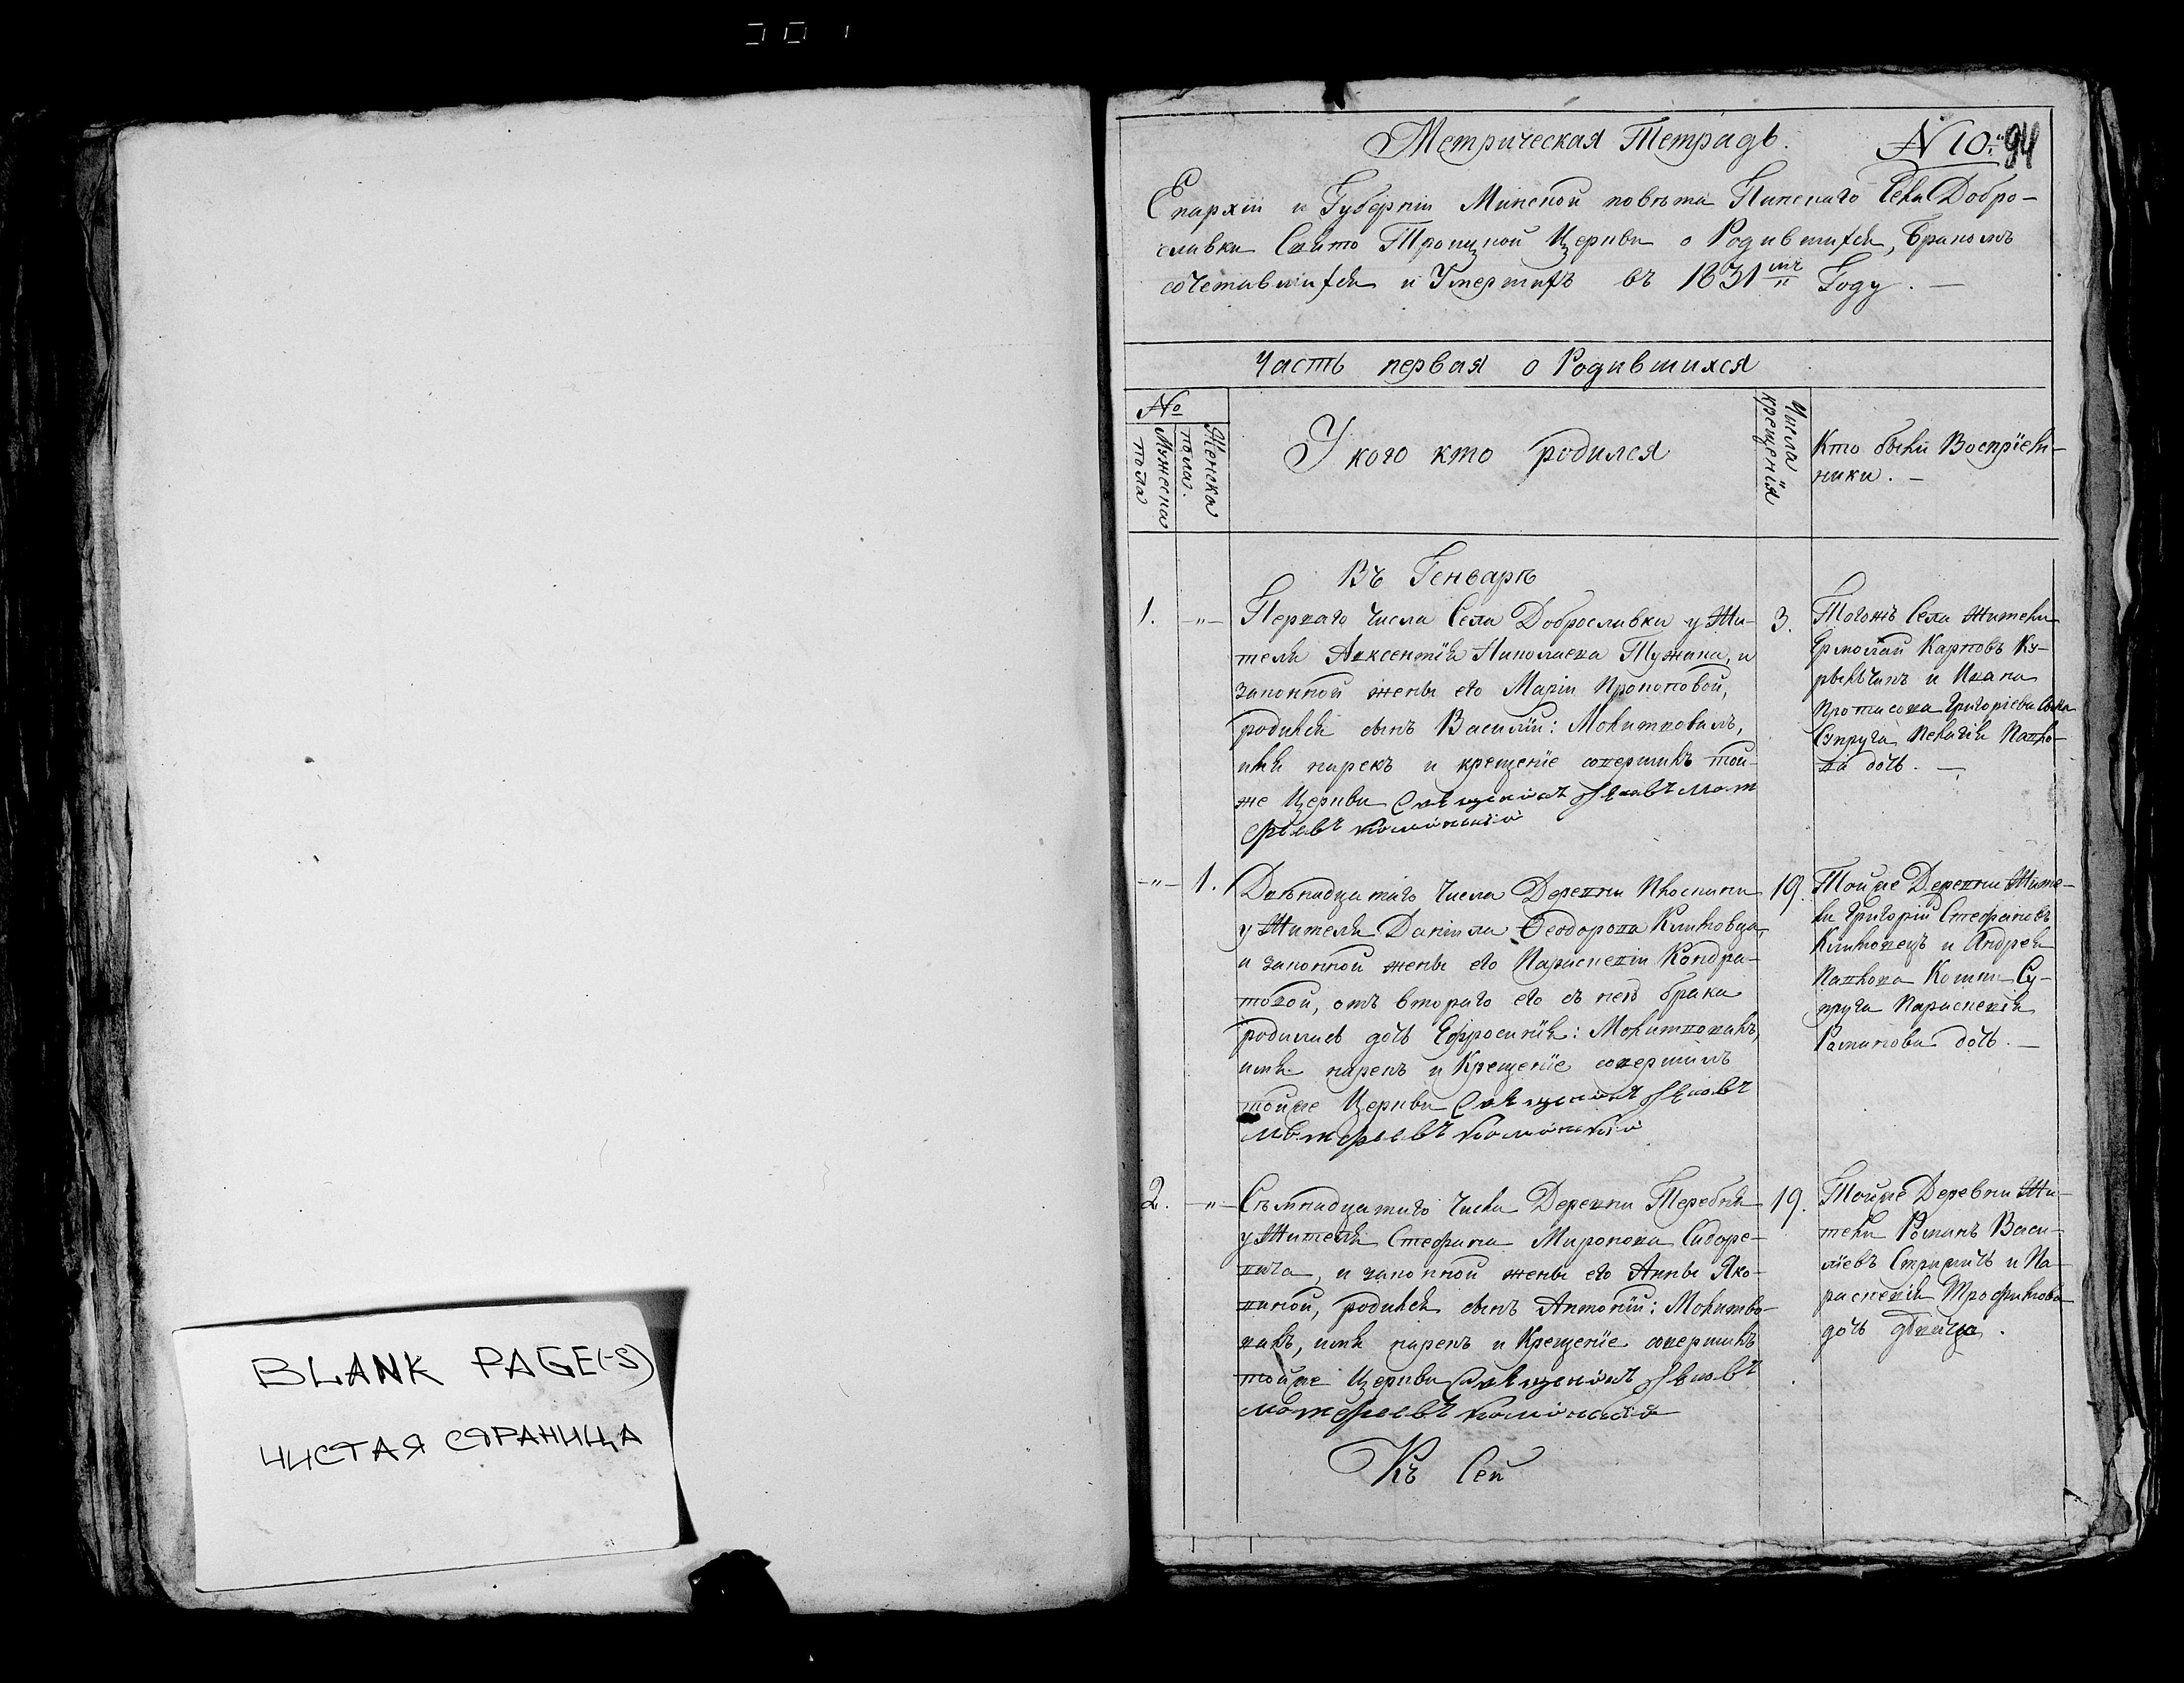 BLANK PAGE(-S)
ЧИСТАЯ СТРАНИЦА
Метрическая Тетрадь. N 10. 94
Епархіи и Губерніи Минской повѣта Пинскаго Села Добро-
славки Свято Троицкой Церкви о Родившихся, бракомъ
сочетавшихся и Умершихъ въ 1831мъ Году. —
Часть первая о Родившихся
№
Мужеска пола
Женска пола.
У кого кто родился
Числа крещенія
Кто были Воспріем-
ники. —
Въ Генварѣ
1. -"- Перваго числа Села Доброславки у Жи-
теля Авксентія Николаева Тужика, и
законной жены его Маріи Прокоповой,
родился сынъ Василій: Молитвовалъ,
имя нарекъ и крещеніе совершилъ той-
же Церкви Священникъ Яковъ Мат
фіевъ
3. Тогожъ Села Жители
Ермолай Карповъ Ку-
и Ивана
Протасова Григоріева
Супруга Пелагія Павло-
ва дочь. —
-"- 1. Двѣнадцатаго числа Деревни Плоскини
у Жителя Даніила Ѳеодорова Климовца,
и законной жены его Параскевіи Кондра-
товой, отъ втораго его съ нею брака
родилась дочь Ефросинія: Молитвовалъ,
имя нарекъ и Крещеніе совершилъ
тойже Церкви Священникъ Яковъ
Матфіевъ
19. Тойже Деревни Жите-
ли Григорій Стефановъ
Климовецъ и Андрея
Павлова Су-
пруга Параскевія
Романова дочь. —
2. -"- Съмнадцатаго числа Деревни Теребня
у Жителя Стефана Миронова Сидоре-
вича, и законной жены его Анны Яко-
вивой, родился сынъ Антоній: Молитво-
валъ, имя нарекъ и Крещеніе совершилъ
тойже Церкви Священникъ Яковъ
Матфіевъ
19. Тойже Деревни Жи-
тели Романъ Васи-
ліевъ и Па-
раскевія Трофимова
дочь дѣвица.
Къ Сей